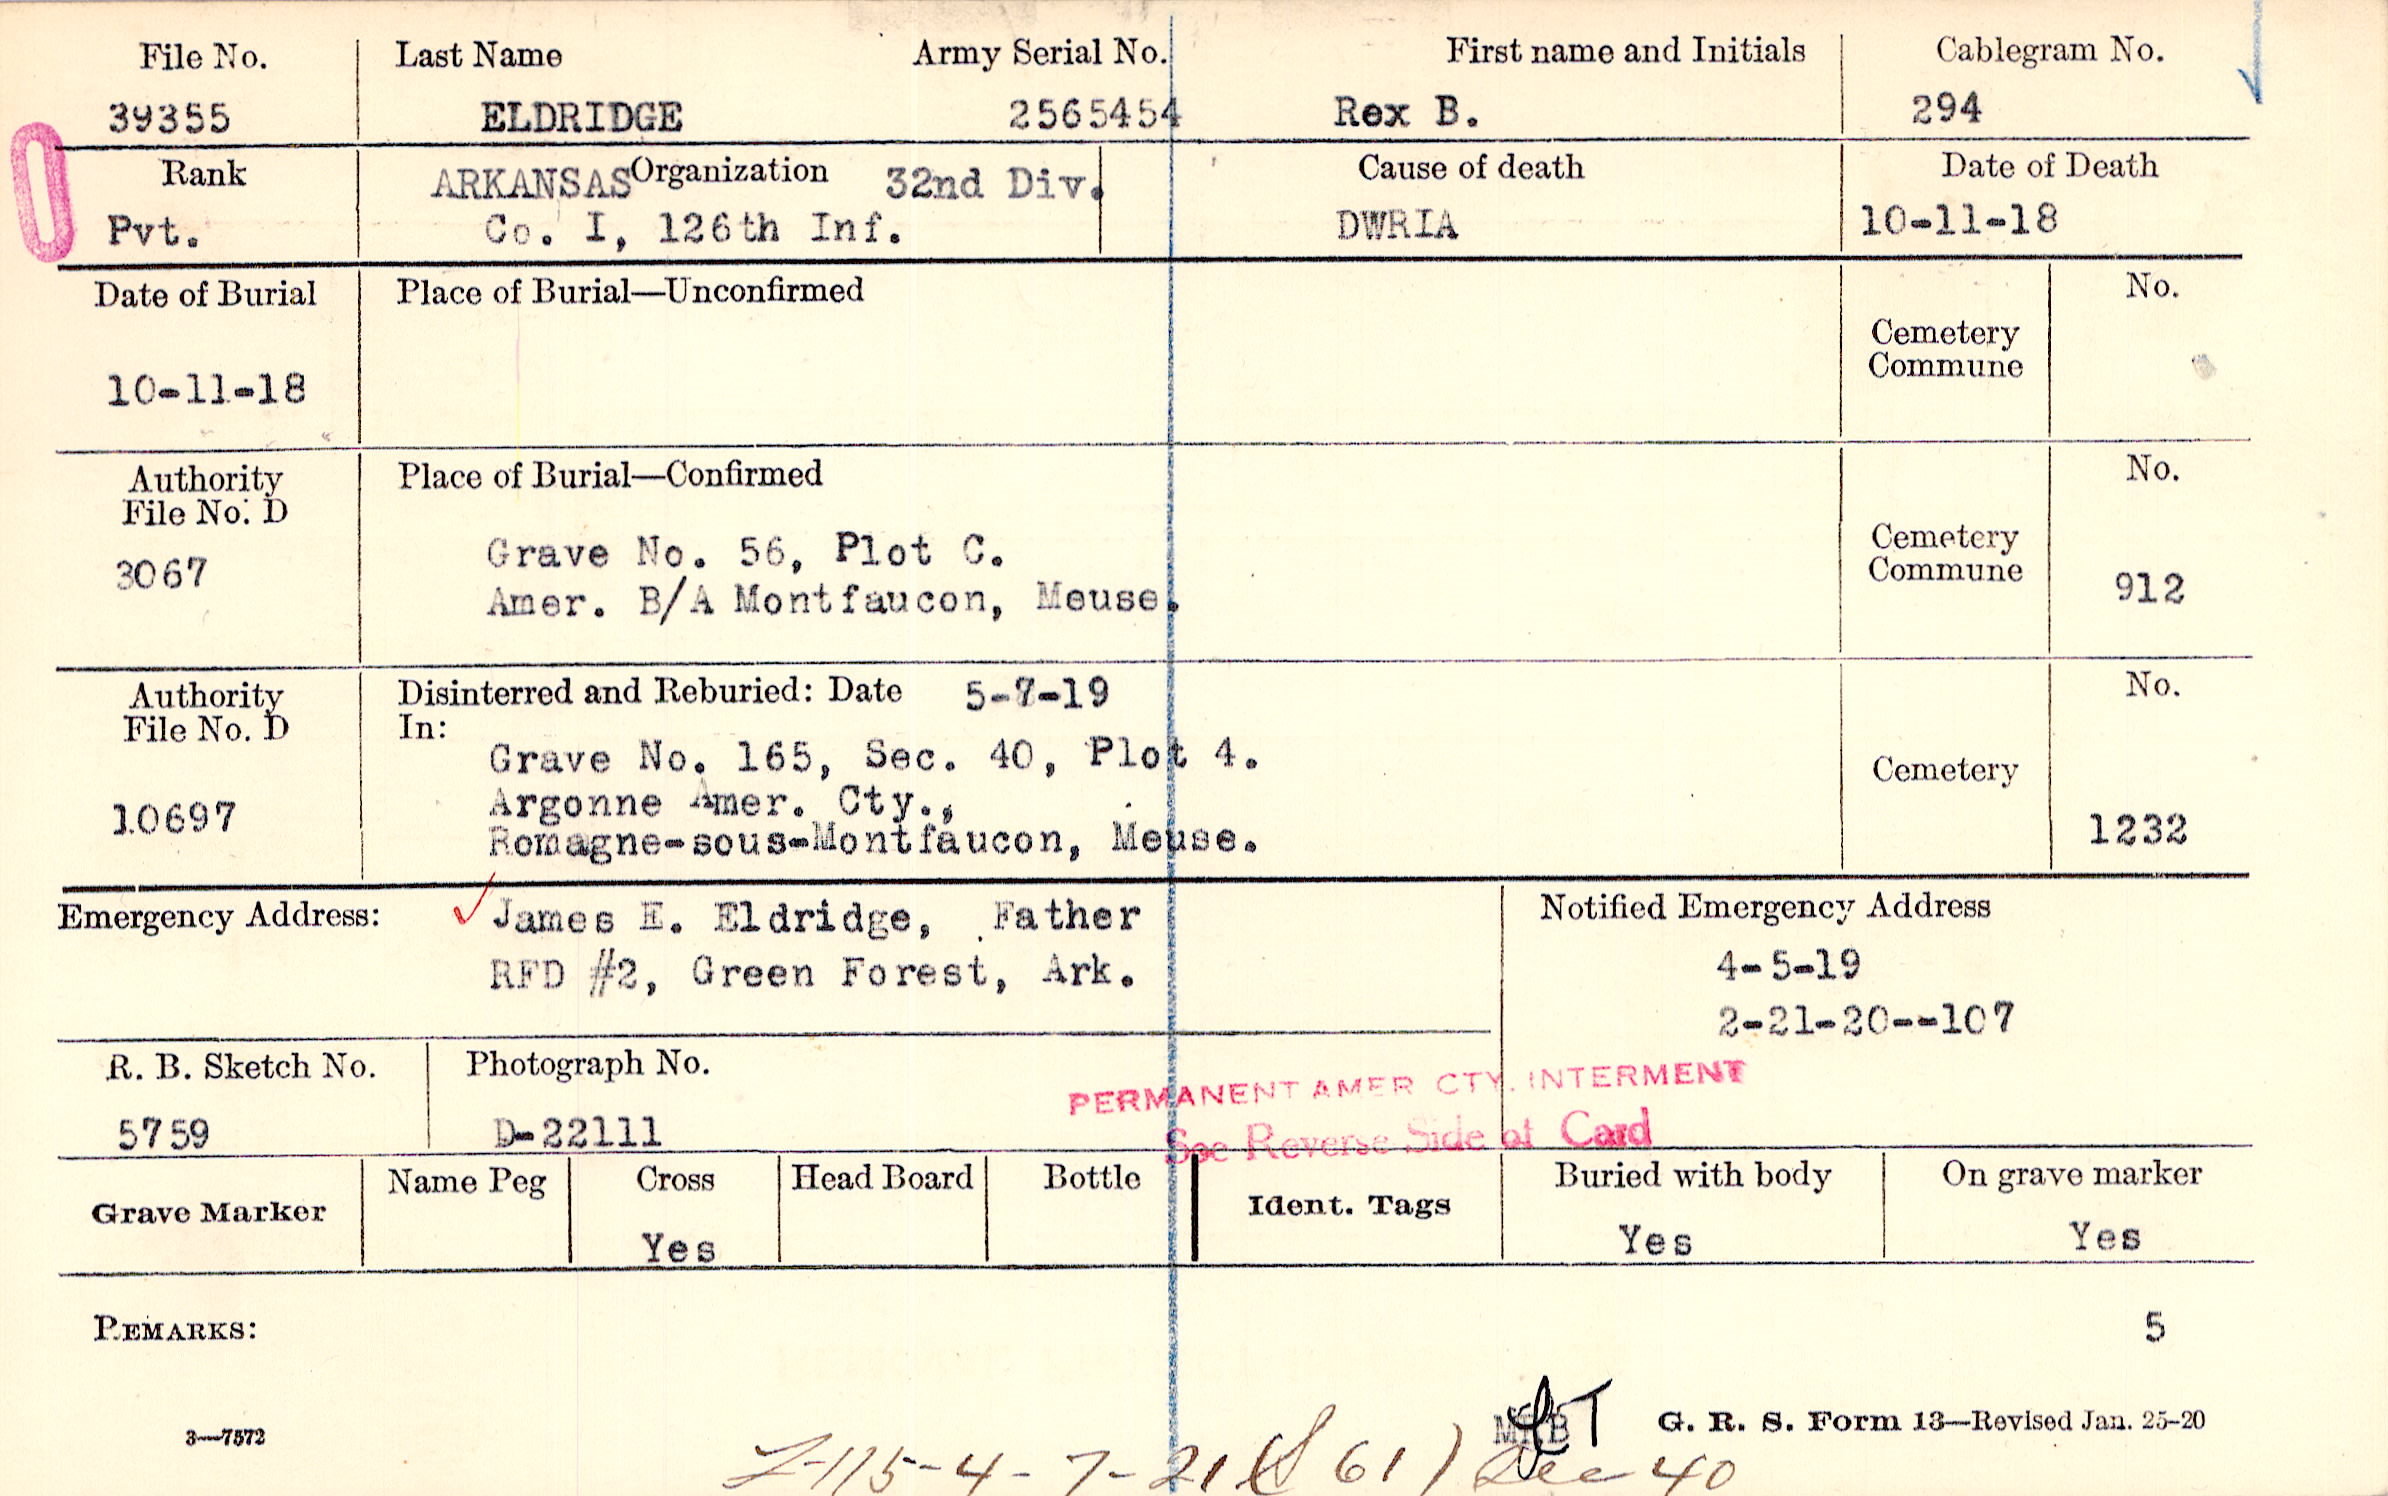 File No. Last Name Army Serial No. First name and Initials Cablegram No.
39355 ELDRIDGE 2565454 Rex B. 294
Rank ARKANSAS Organization 32nd Div. Cause of death Date of Death
Pvt. Co. I, 126th Inf. DWRIA 10-11-18
Date of Burial Place of Burial—Unconfirmed No.
Cemetery
Commune
10-11-18
Authority Place of Burial—Confirmed No.
File No. D
Grave No. 56, Plot C. Cemetery
3067 Commune 912
Amer. B/A Montfaucon, Meuse.
Authority Disinterred and Reburied: Date 5-7-19 No.
File No. D In:
Grave No. 165, Sec. 40, Plot 4. Cemetery
Argonne Amer. Cty.,
10697 Romagne-sous-Montfaucon, Meuse. 1232
Emergency Address: James E. Eldridge, Father Notified Emergency Address
RFD #2, Green Forest, Ark. 4-5-19
2-21-20--107
R. B. Sketch No. Photograph No.
PERMANENT AMER CTY. INTERMENT
5759 D-22111 See Reverse Side of Card
Grave Marker Name Peg Cross Head Board Bottle Ident. Tags Buried with body On grave marker
Yes Yes Yes
REMARKS: 5
3—7572 G. R. S. Form 13—Revised Jan. 25-20
115-4-7-21 ( 61) Dec 40